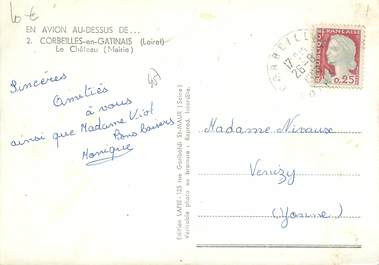 10 €
EN AVION AU-DESSUS DE...
2. CORBEILLES-en-GATINAIS (Loiret)
Le Château (Mairie)
Sincères
Amitiés
à vous
ainsi que Madame Viol
Bons baisers
Monique
45
Edition LAPIE-125 rue Garibaldi St-MAUR (Seine)
Véritable photo au bromure - Reprod. interdite.
CORBEILLE
17
26-8
REPUBLIQUE FRANCAISE
0,25
Madame Nivaux
Venizy
(Yonne)